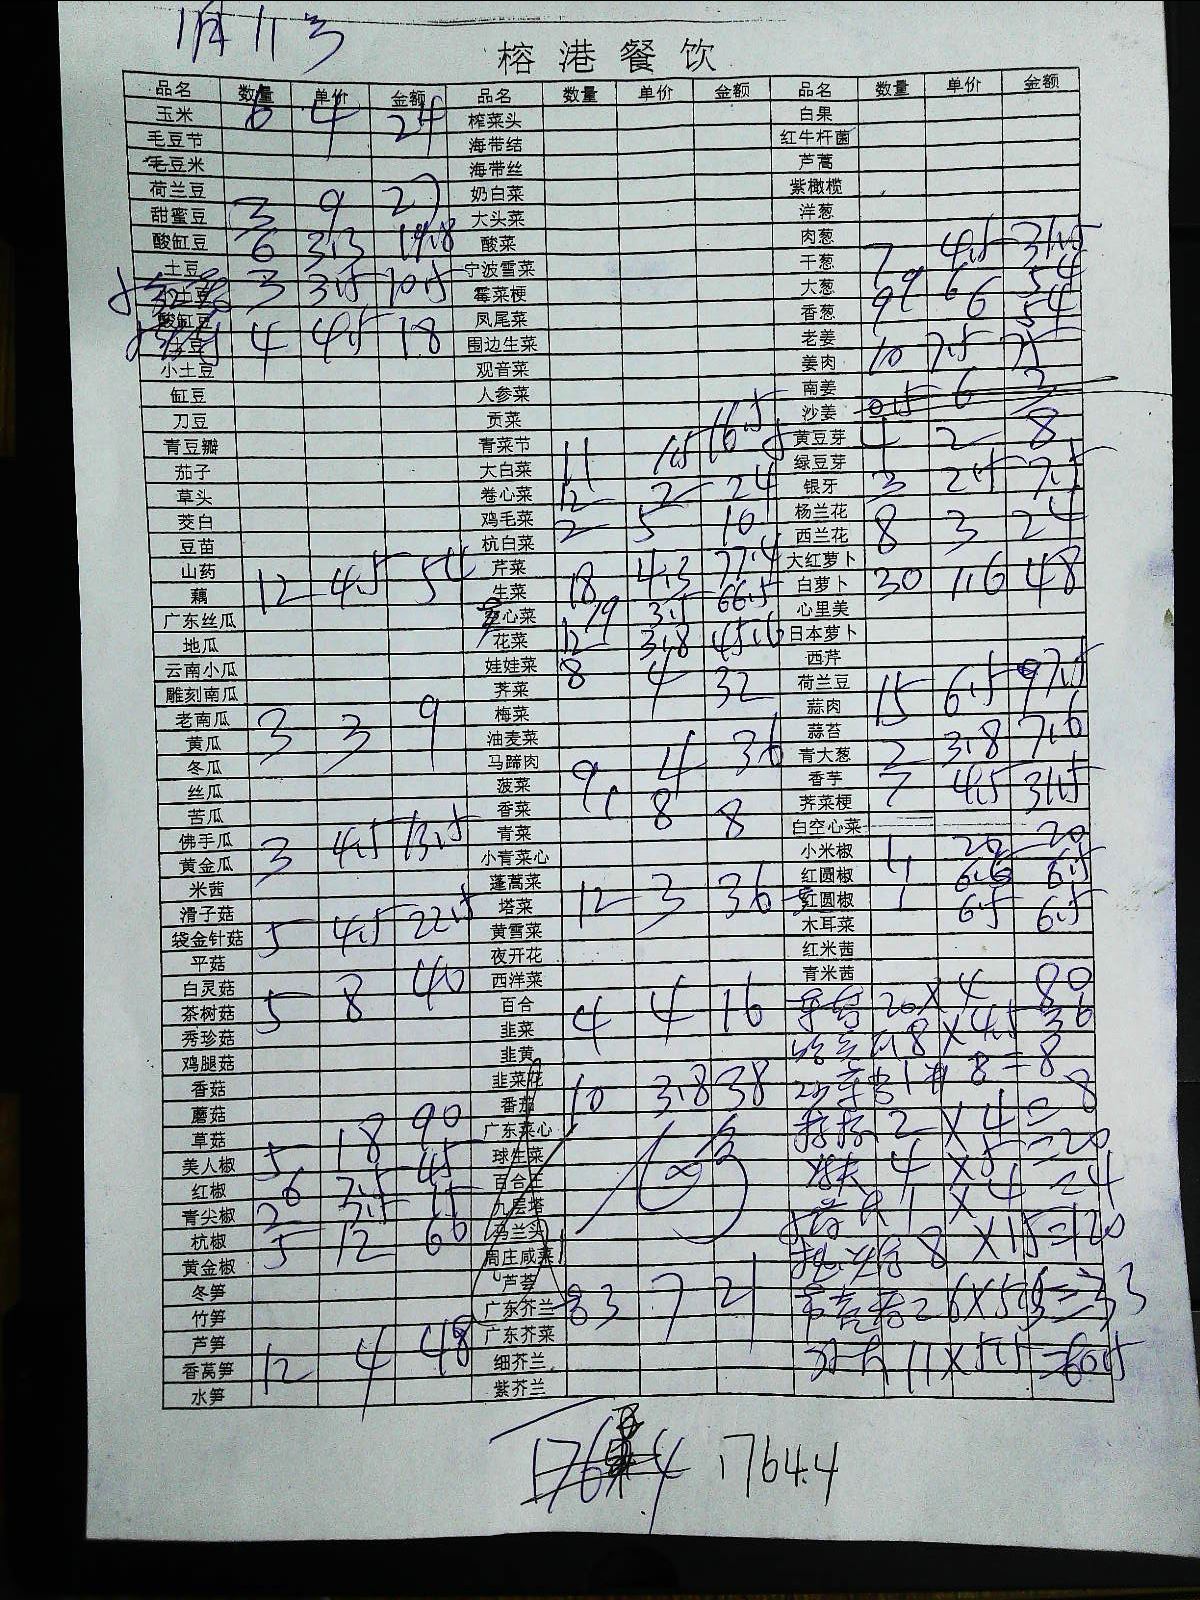 1月11号
榕港餐饮
品名 数量 单价 金额
玉米 6 4 24
毛豆节
毛豆米
荷兰豆
甜蜜豆 3 9 27
酸缸豆 6 3.3 19.8
土豆
小土豆 3 3.5 10.5
酸缸豆
土豆 4 4.5 18
小土豆
缸豆
刀豆
青豆瓣
茄子
草头
茭白
豆苗
山药
藕 12 4.5 54
广东丝瓜
地瓜
云南小瓜
雕刻南瓜
老南瓜
黄瓜 3 3 9
冬瓜
丝瓜
苦瓜
佛手瓜
黄金瓜 3 4.5 13.5
米茜
滑子菇
袋金针菇 5 4.5 22.5
平菇
白灵菇
茶树菇 5 8 40
秀珍菇
鸡腿菇
香菇
蘑菇
草菇
美人椒 5 18 90
红椒 6 7.5 45
青尖椒 2 7.5 15
杭椒 5 12 60
黄金椒
冬笋
竹笋
芦笋
香莴笋 12 4 48
水笋
品名 数量 单价 金额
榨菜头
海带结
海带丝
奶白菜
大头菜
酸菜
宁波雪菜
霉菜梗
凤尾菜
围边生菜
观音菜
人参菜
贡菜
青菜节
大白菜 11 1.5 16.5
卷心菜 12 2 24
鸡毛菜 2 5 10
杭白菜
芹菜
生菜 18 4.3 77.4
心菜 19 3.5 66.5
花菜 12 3.8 45.6
娃娃菜 8 4 32
荠菜
梅菜
油麦菜
马蹄肉
菠菜 9 4 36
香菜 1 8 8
青菜
小青菜心
蓬蒿菜
塔菜 12 3 36
黄雪菜
夜开花
西洋菜
百合
韭菜 4 4 16
韭黄
韭菜花
番茄 10 3.8 38
广东菜心
球生菜
百合王
九层塔
马兰头
周庄咸菜
芦荟
广东芥兰 3 7 21
广东芥菜
细芥兰
紫芥兰
品名 数量 单价 金额
白果
红牛杆菌
芦蒿
紫橄榄
洋葱
肉葱
干葱 7 4.5 31.5
大葱 9 6 54
香葱 9 6 54
老姜
姜肉 10 7.5 75
南姜
沙姜 0.5 6 3
黄豆芽 4 2 8
绿豆芽
银牙 3 2.5 7.5
杨兰花
西兰花 8 3 24
大红萝卜
白萝卜 30 1.6 48
心里美
日本萝卜
西芹
荷兰豆
蒜肉 15 6.5 97.5
蒜苔
青大葱 2 3.8 7.6
香芋 7 4.5 31.5
荠菜梗
白空心菜
小米椒 1 20 20
红圆椒 1 6.5 6.5
红圆椒 1 6.5 6.5
木耳菜
红米茜
青米茜
20×4 80
8×4.5 36
1 8=8
2×4=8
4×5=20
1×4=4
8×15=120
6×5.5=33
11×5.5=60.5
1764.4